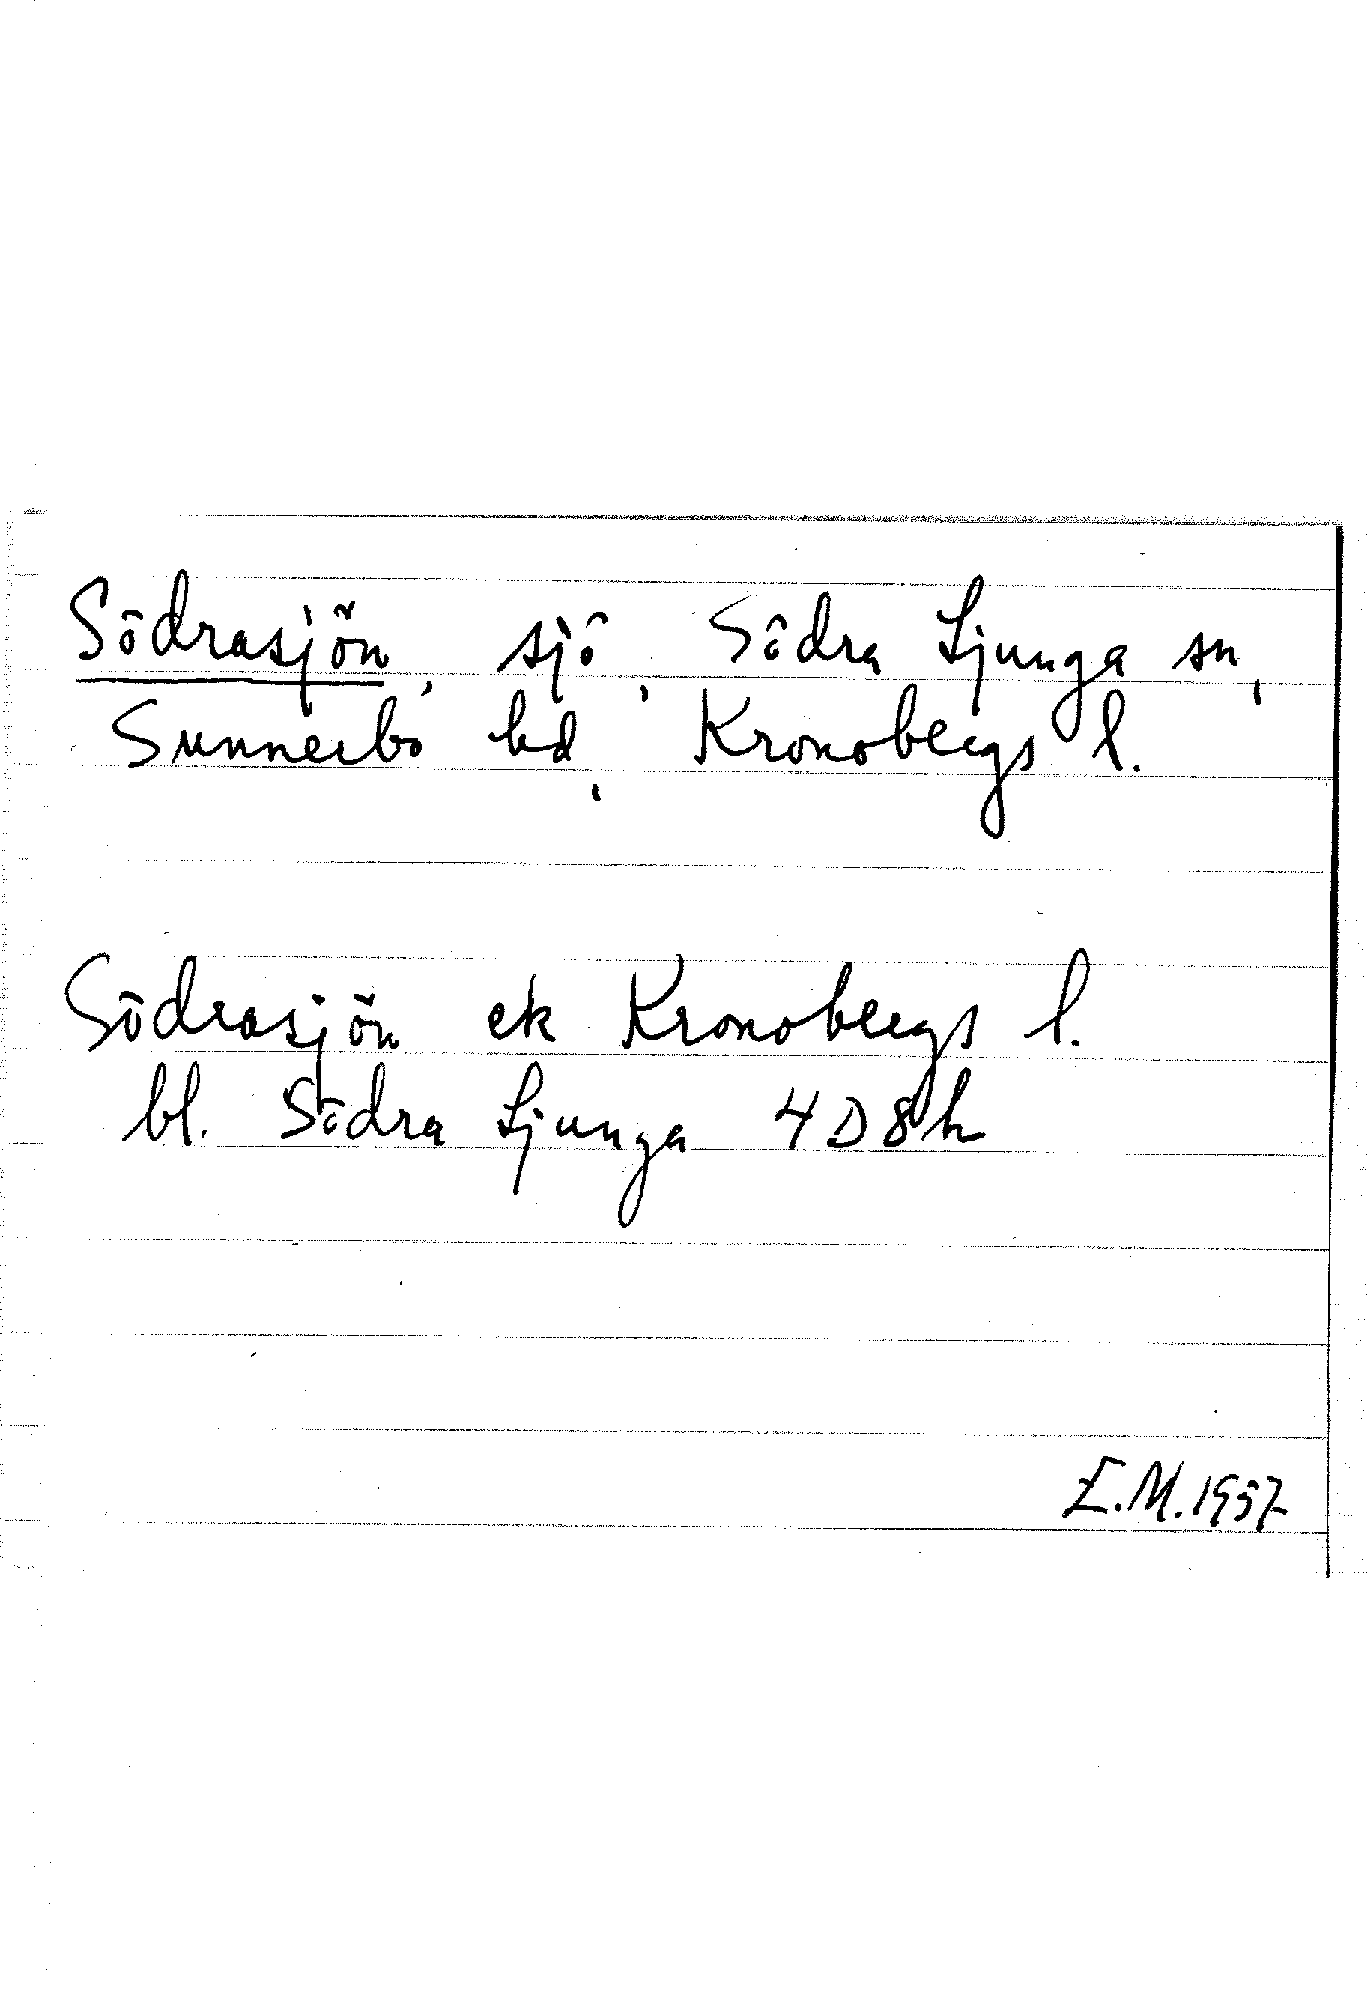 Södrasjön, sjö, Södra Ljunga sn,
Sunnerbo hd, Kronobergs l.
Södrasjön ek Kronobergs l.
bl. Södra Ljunga 4D8h
E.M. 1957